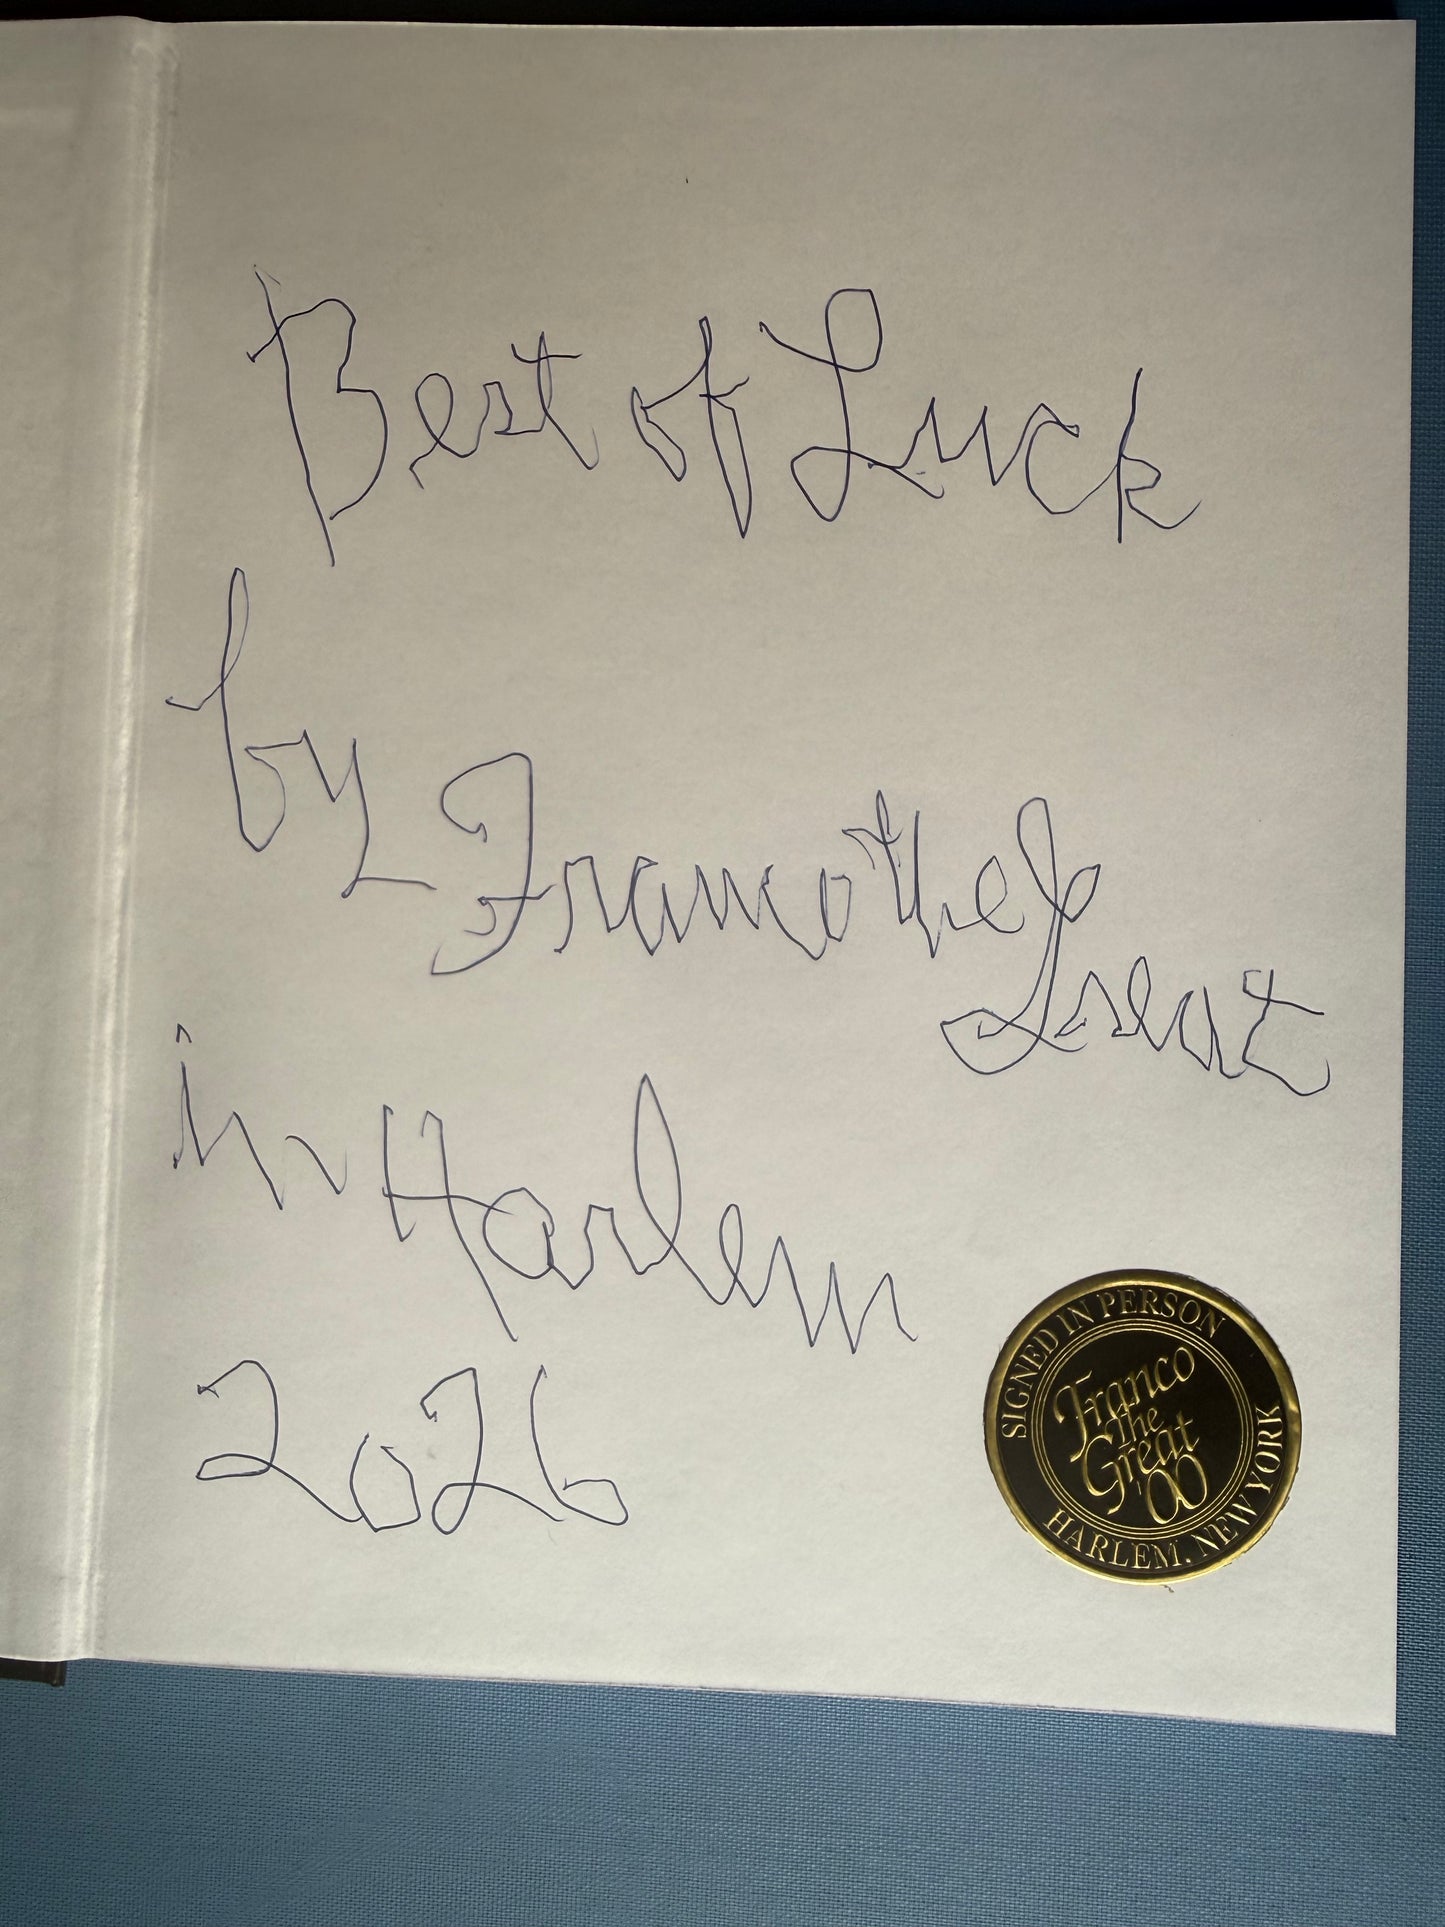 Best of Luck
by Franco the
Great
in Harlem
2026
SIGNED IN PERSON
Franco
the
Great
HARLEM, NEW YORK